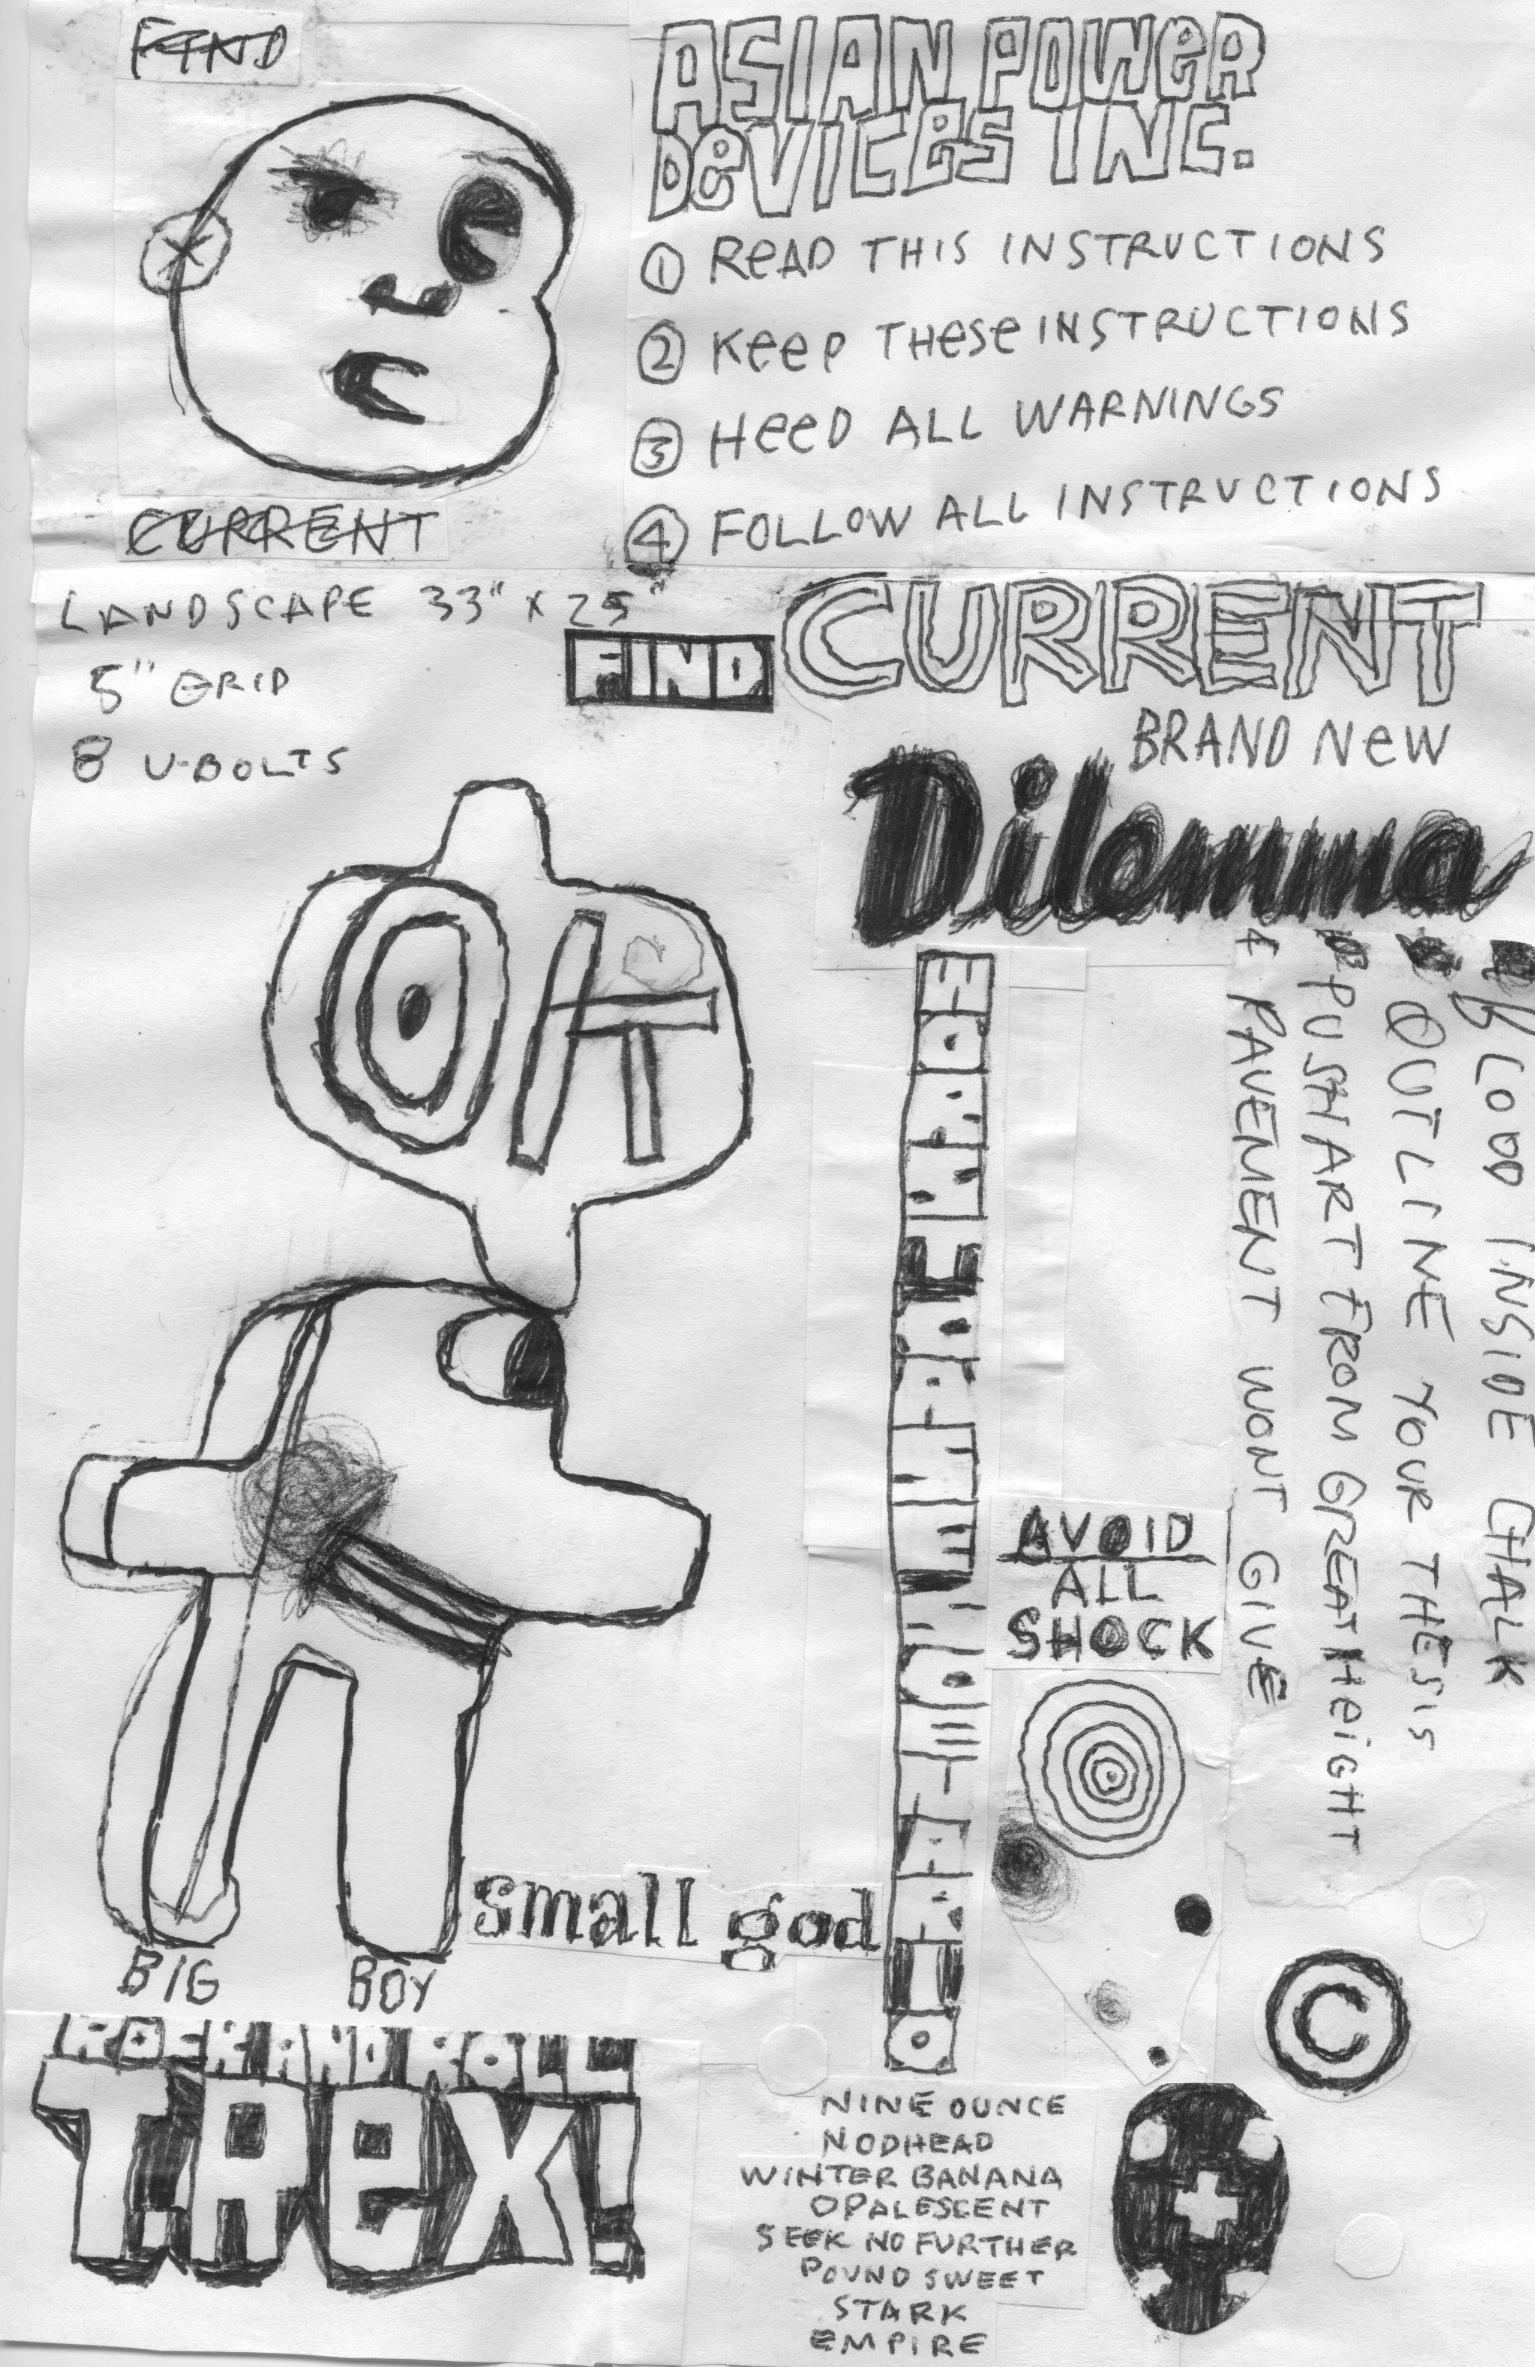 FIND
CURRENT
ASIAN POWeR
DeVICeS INC.
① ReAD THIS INSTRUCTIONS
② KeeP THeSe INSTRUCTIONS
③ HeeD ALL WARNINGS
④ FOLLOW ALL INSTRUCTIONS
LANDSCAPE 33" X 25"
5" GRID
8 U-BOLTS
FIND
CURRENT
BRAND NeW
Dilemma
BLOOD INSIDE CHALK
OUTLINE YOUR THESIS
PUSH ART FROM GREAT HeiGHT
PAVEMENT WONT GIVE
AVOID
ALL
SHOCK
small god
BIG BOY
ROCK AND ROLL
T.ReX!
©
NINE OUNCE
NODHEAD
WINTER BANANA
OPALESCENT
SEEK NO FURTHER
POUND SWEET
STARK
EMPIRE